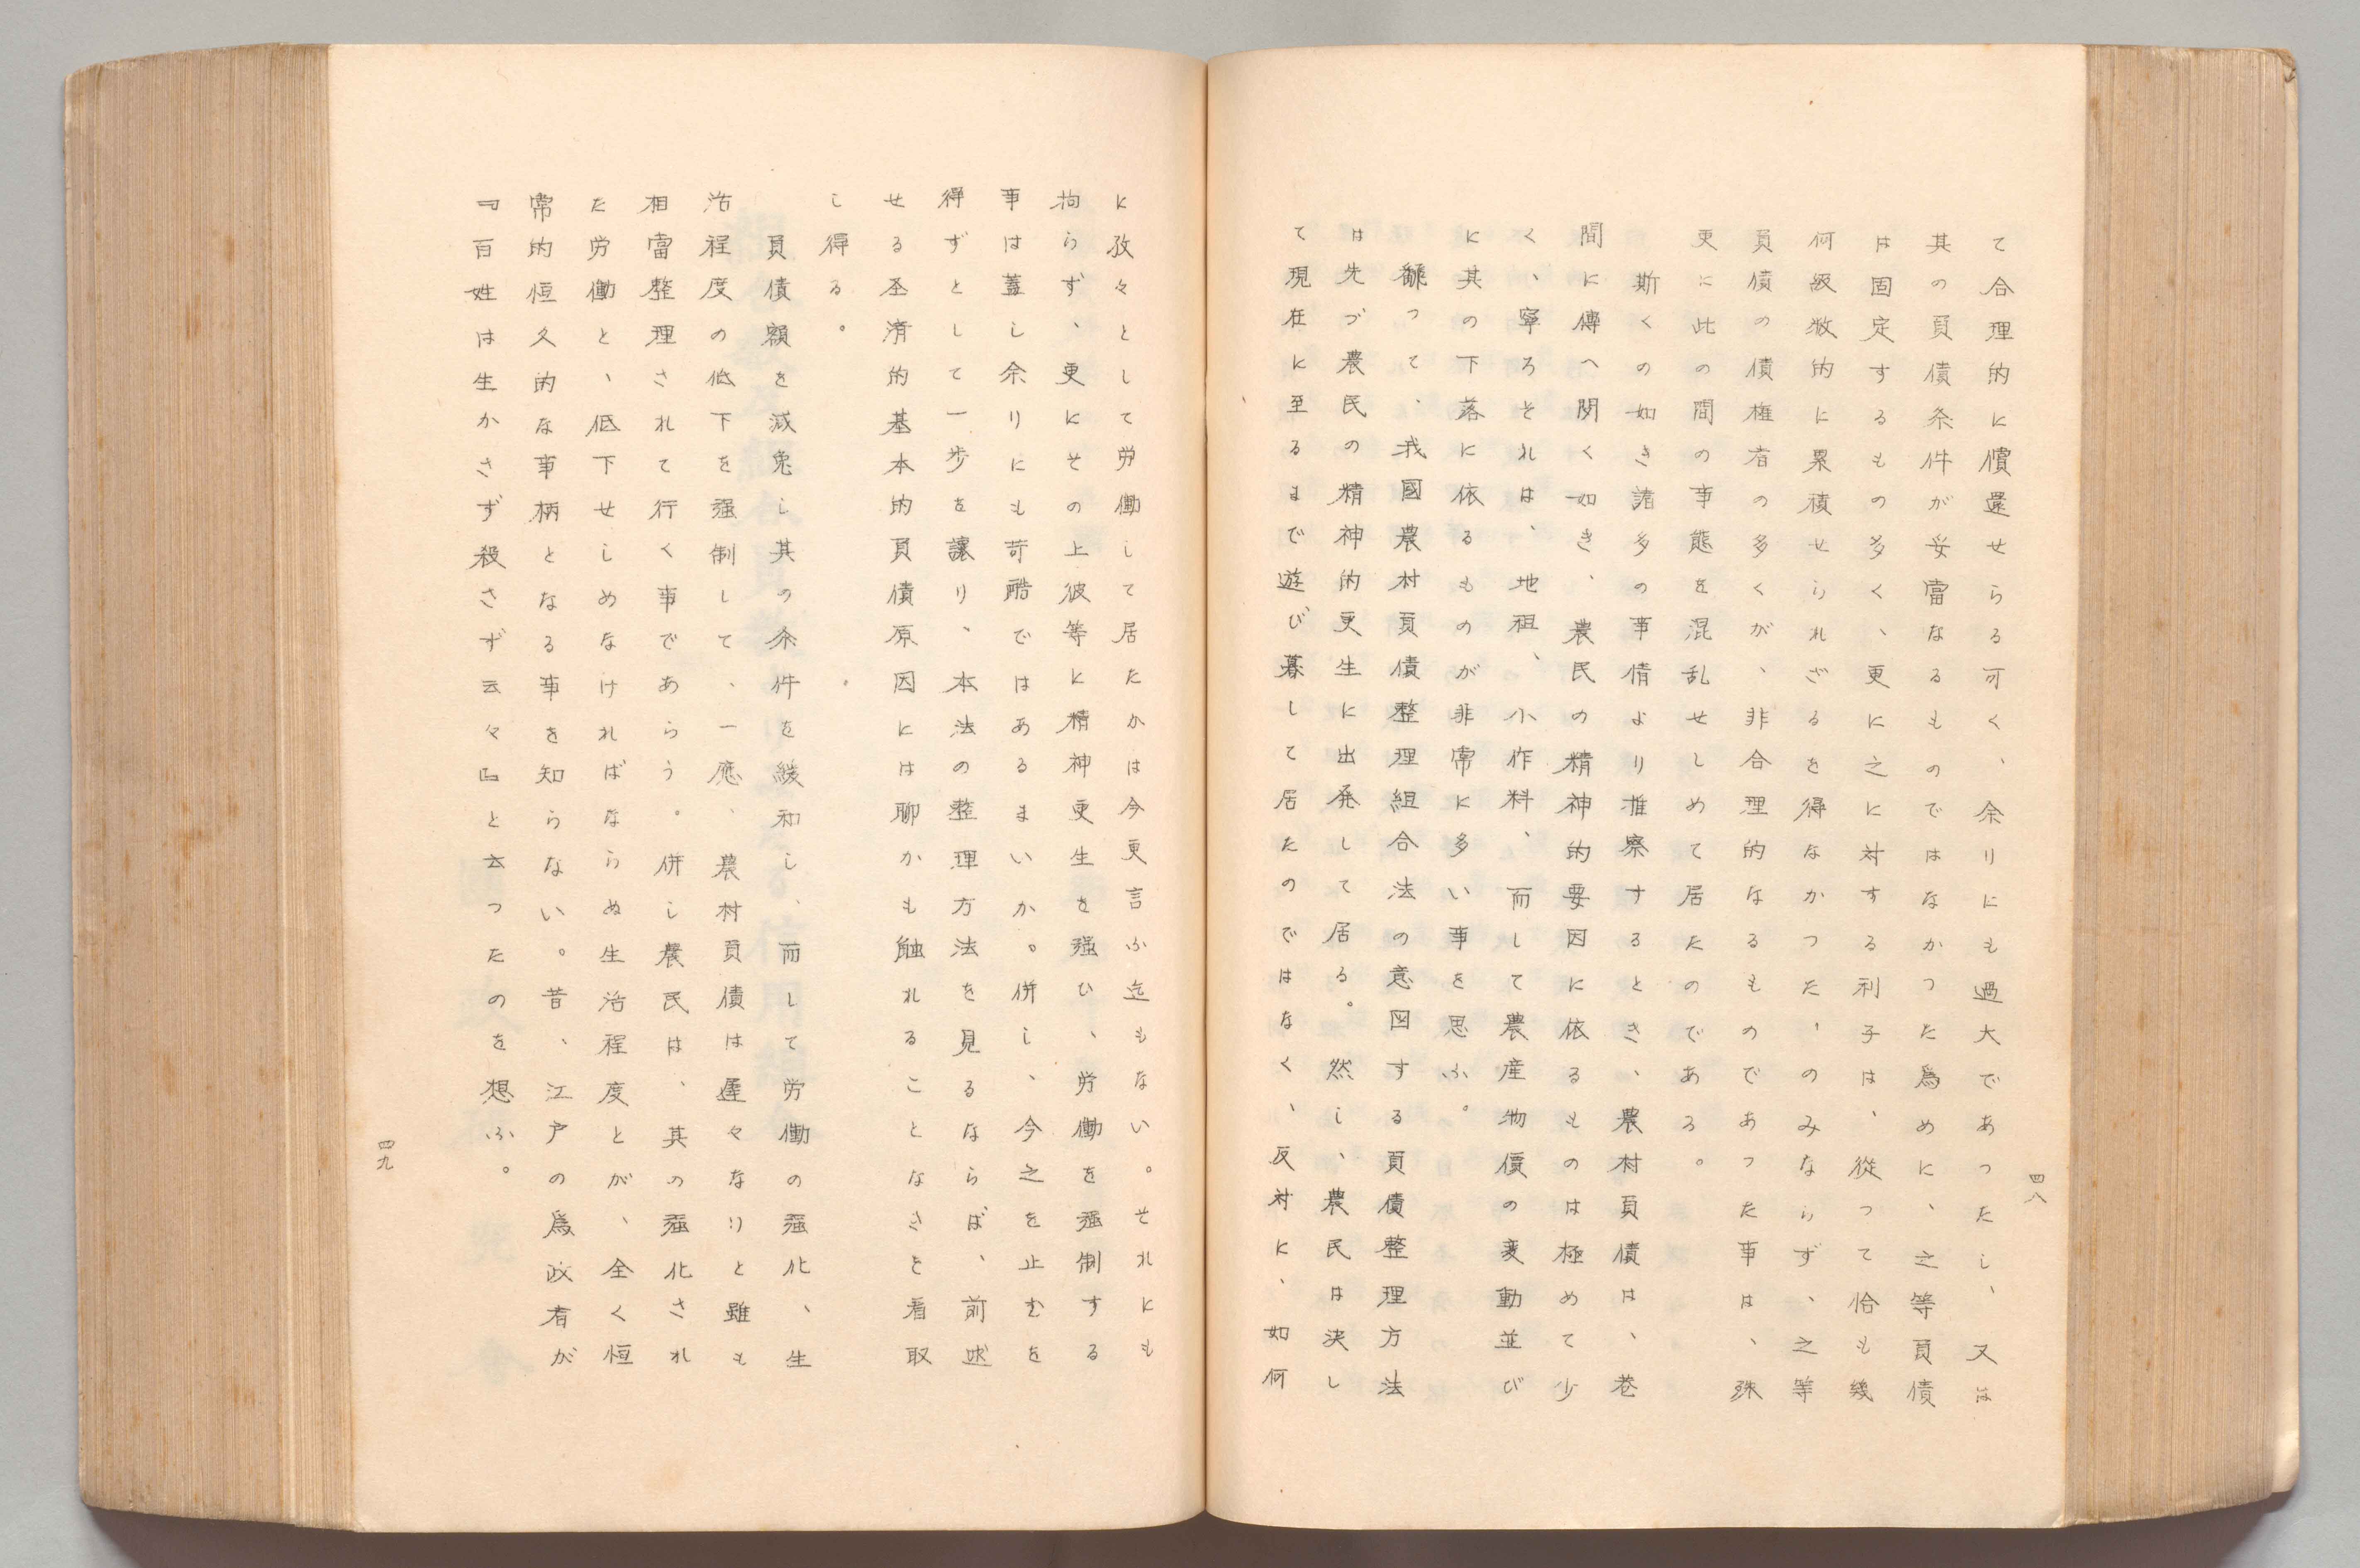 四八
て合理的に償還せらる可く、余りにも過大であつたし、又は
其の負債条件が妥當なるものではなかつた為めに、之等負債
は固定するもの多く、更に之に対する利子は、從つて恰も幾
何級数的に累積せられざるを得なかつた、のみならず、之等
負債の債権者の多くが、非合理的なるものであつた事は、殊
更に此の間の事態を混乱せしめて居たのである。
斯くの如き諸多の事情より推察するとき、農村負債は、巷
間に傳へ聞く如き、農民の精神的要因に依るものは極めて少
く、寧ろそれは、地祖、小作料、而して農産物價の変動並び
に其の下落に依るものが非常に多い事を思ふ。
飜つて、我國農村負債整理組合法の意図する負債整理方法
は先づ農民の精神的更生に出発して居る。然し、農民は決し
て現在に至るまで遊び暮して居たのではなく、反対に、如何
に孜々として労働して居たかは今更言ふ迄もない。それにも
拘らず、更にその上彼等に精神更生を强ひ、労働を强制する
事は蓋し余りにも苛酷ではあるまいか。併し、今之を止むを
得ずとして一歩を譲り、本法の整理方法を見るならば、前述
せる圣済的基本的負債原因には聊かも触れることなきを看取
し得る。
負債額を減免し其の条件を緩和し、而して労働の强化、生
活程度の低下を强制して、一應、農村負債は遅々なりと雖も
相當整理されて行く事であらう。併し農民は、其の强化され
た労働と、低下せしめなければならぬ生活程度とが、全く恒
常的恒久的な事柄となる事を知らない。昔、江戸の為政者が
『百姓は生かさず殺さず云々』と云つたのを想ふ。
四九